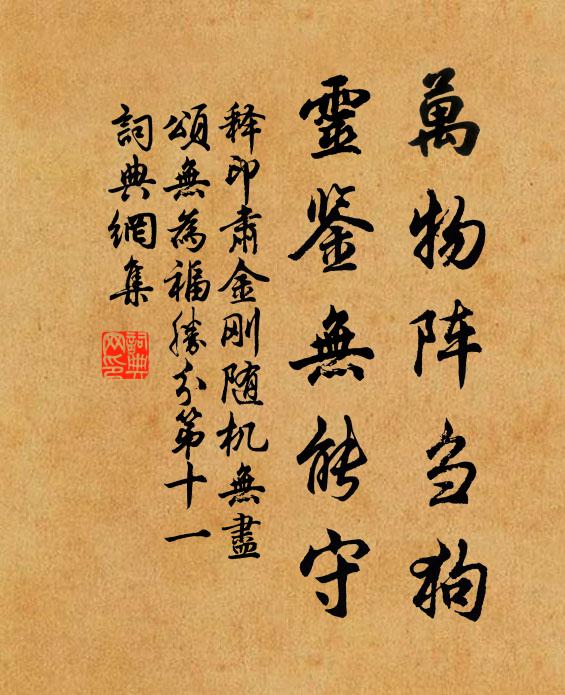 萬物阵刍狗
靈鉴無能守
释印肃金刚随机無盡
頌無為福勝分第十一
詞典網集
詞典网印